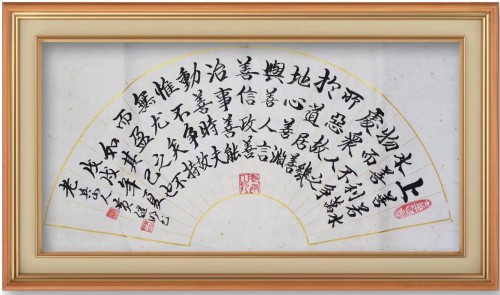 上善若水
水善利萬
物而不爭
處衆人之
所惡故幾
於道居善
地心善淵
與善人言
善信政善
治事善能
動善時夫
惟不爭故
無尤矣持
而盈之不
如其已也